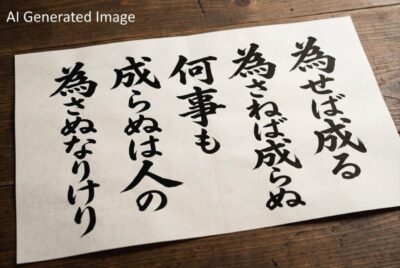 AI Generated Image
為せば成る
為さねば成らぬ
何事も
成らぬは人の
為さぬなりけり